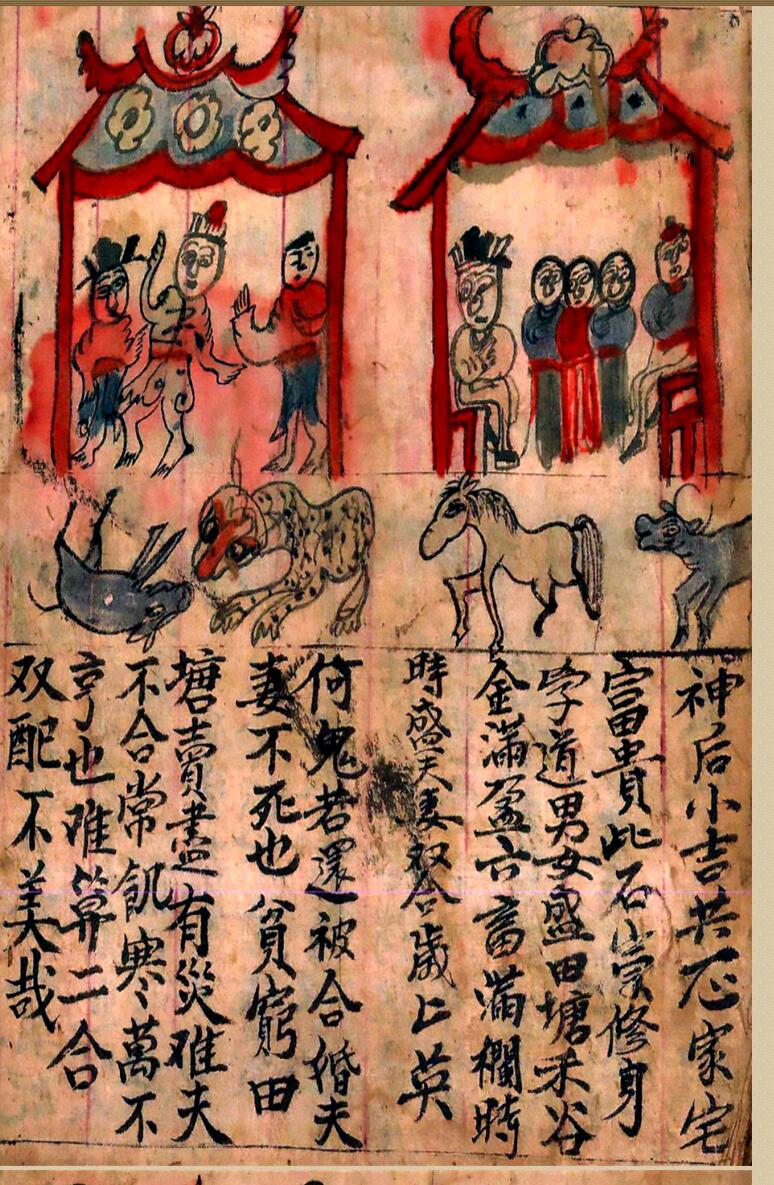 神后小吉共一位家宅
富貴此石崇修身
学道男女盛田塘禾谷
金滿盈六畜滿欄時
時盛夫妻双合歲上英
何鬼若還被合婚夫
妻不死也貧窮田
塘賣盡有災难夫
不合常飢寒萬不
亨也唯算二合
双配不美哉